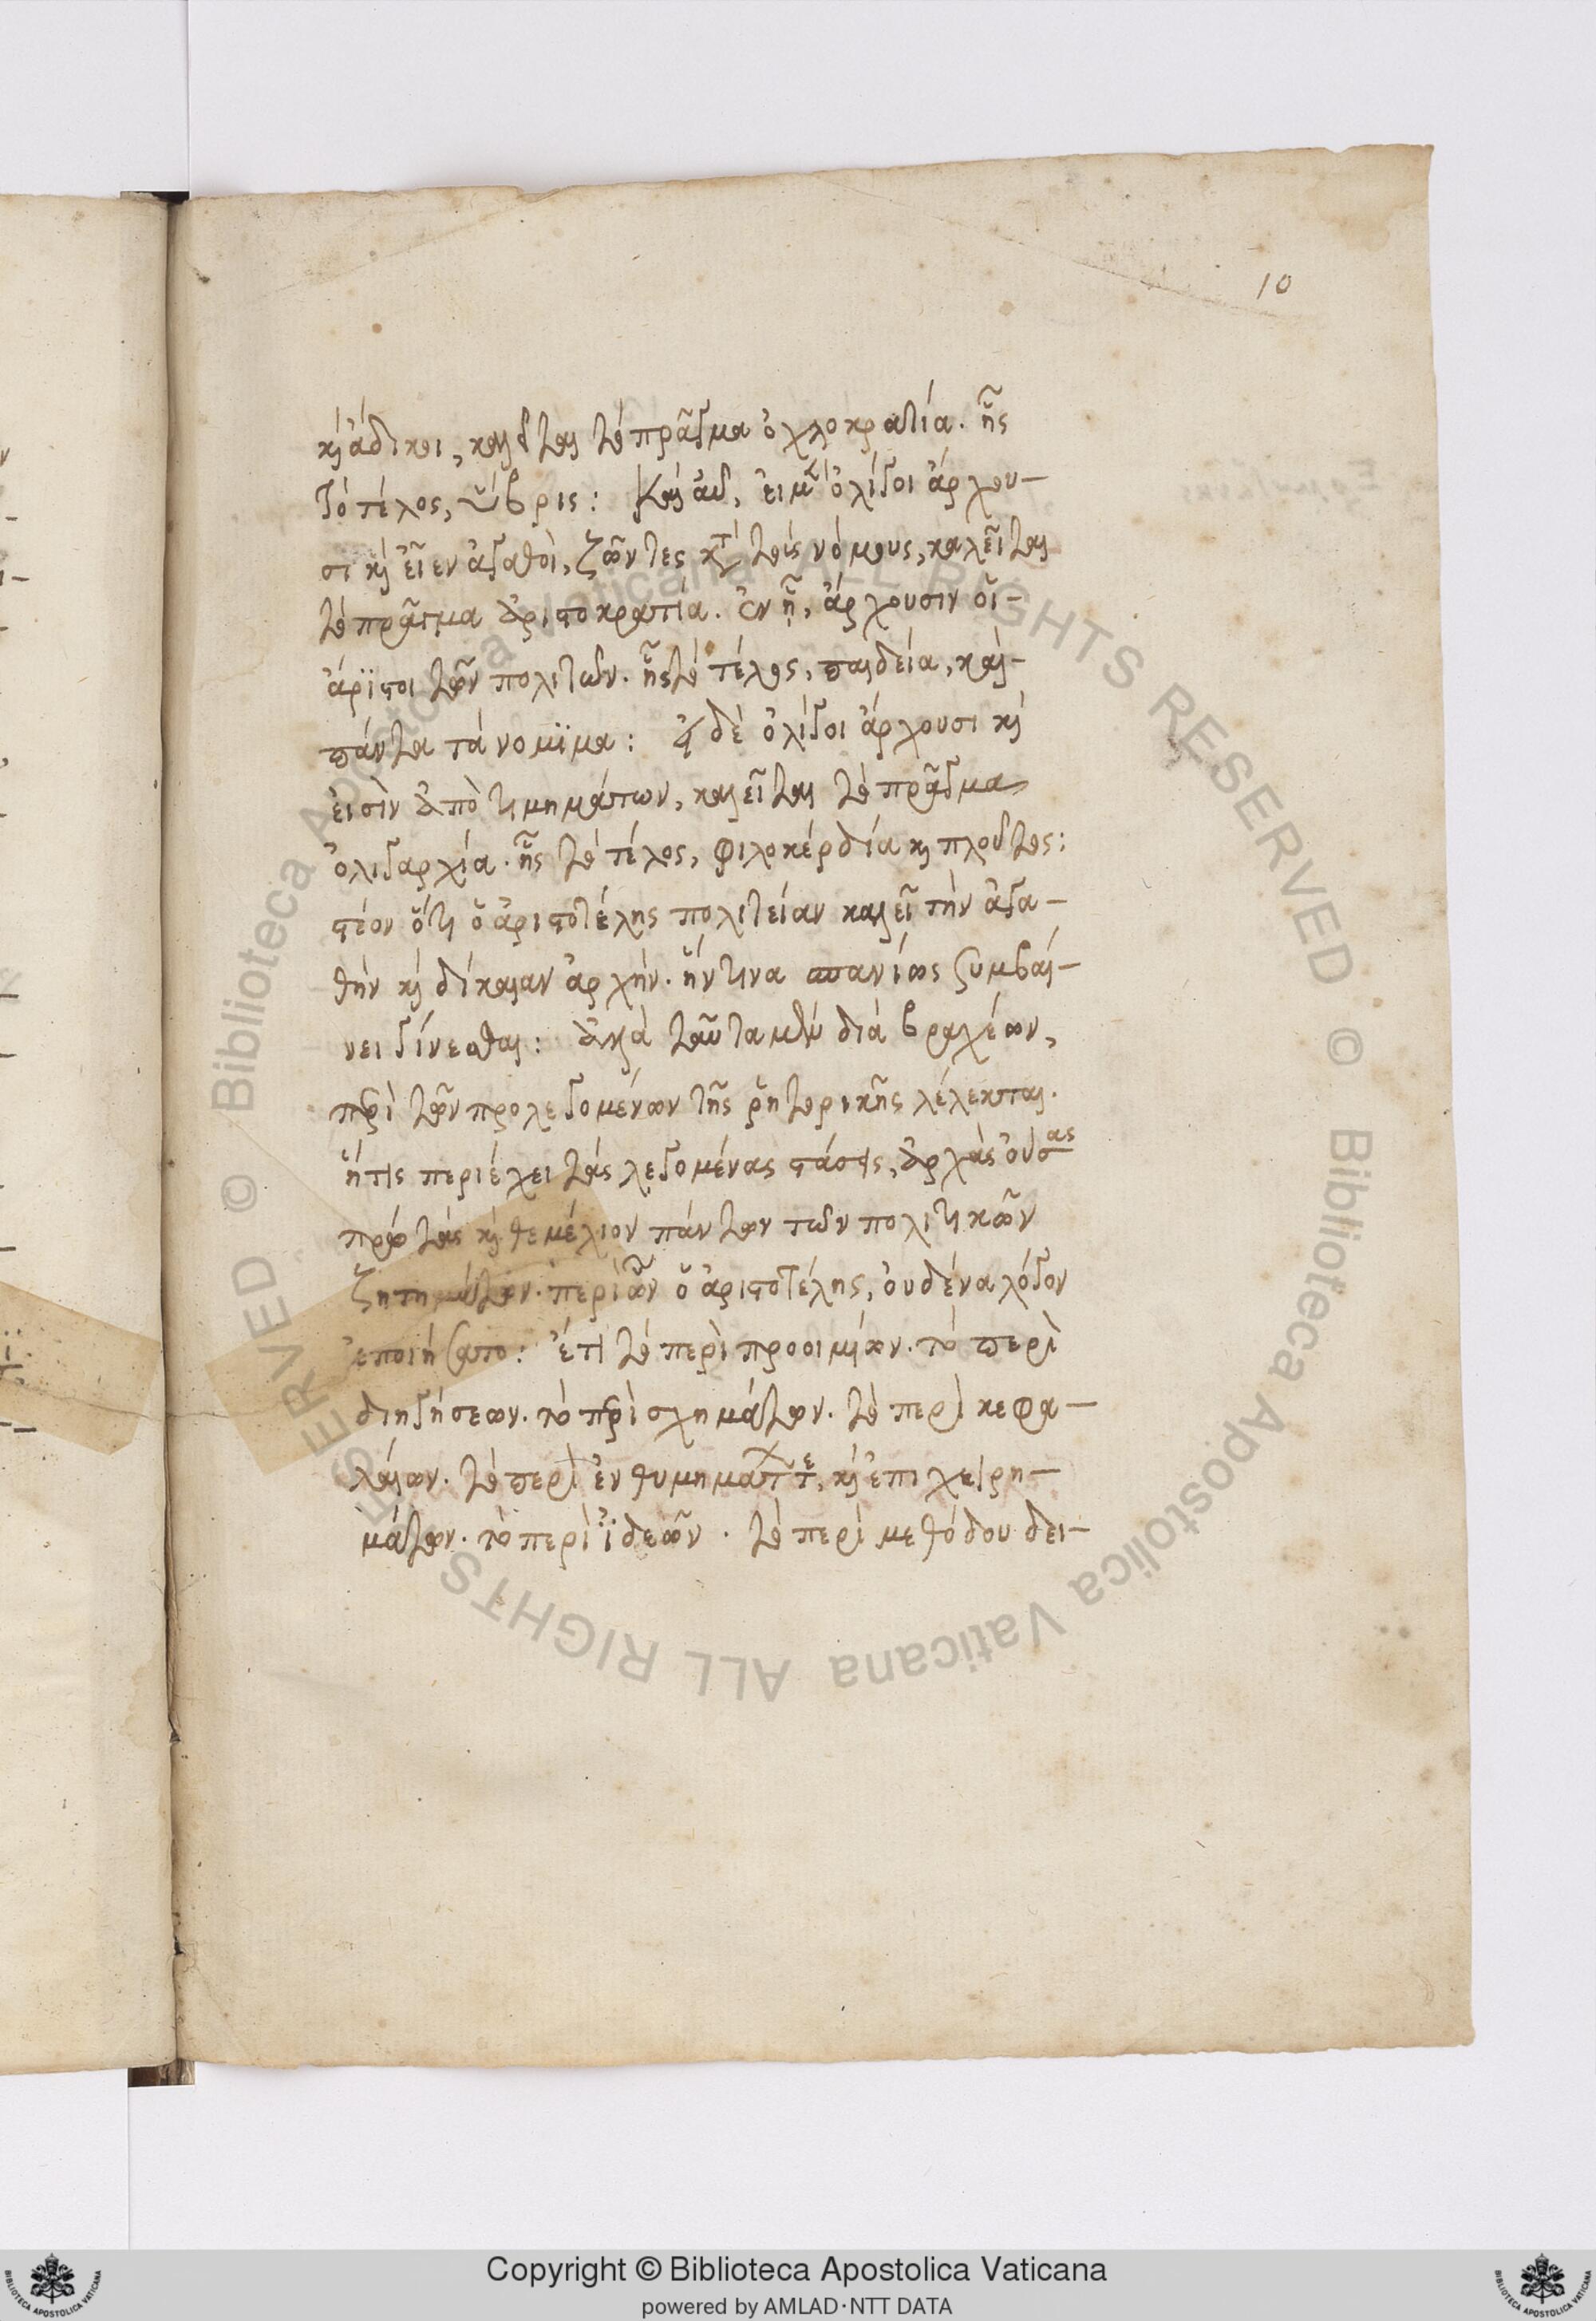 10
κὶ ἄδικοι, καλεῖται τὸ πρᾶγμα ὀχλοκρατία. ἧς
τὸ τέλος, ὕβρις: Καὶ ἂν, εἰ μὲν ὀλίγοι ἄρχου-
σι κὶ εἶεν ἀγαθοὶ, ζῶντες κατὰ τοὺς νόμους, καλεῖται
τὸ πρᾶγμα ἀριστοκρατία. ἐν ᾗ, ἄρχουσιν οἱ-
ἄριστοι τῶν πολιτῶν. ἧς τὸ τέλος, παιδεία, καὶ-
πάντα τὰ νομϊμα: εἰ δὲ ὀλίγοι ἄρχουσι κὶ
εἰσὶν ἀπὸ τιμημάτων, καλεῖται τὸ πρᾶγμα
ὀλιγαρχία. ἧς τὸ τέλος, φιλοκέρδία κὶ πλοῦτος:
στέον ὅτι ὁ ἀριστοτέλης πολιτείαν καλεῖ τὴν ἀγα-
θὴν κὶ δίκαιαν ἀρχὴν. ἥντινα σπανίως συμβαί-
νει γίνεσθαι: ἀλλὰ ταῦτα μὲν διὰ βραχέων,
περὶ τῶν προλεγομένων τῆς ῥητορικῆς λέλεκται.
ἥτις περιέχει τὰς λεγομένας στάσεις, ἀρχὰς οὔσας
πρώτας κὶ θεμέλιον πάντων τῶν πολιτικῶν
ζητημάτων. περὶ ὧν ὁ ἀριστοτέλης, οὐδένα λόγον
ἐποιήσατο: ἔτι τὸ περὶ προοιμίων. τὸ περὶ
διηγήσεων. τὸ περὶ σχημάτων. τὸ περὶ κεφα-
λαίων. τὸ περὶ ἐνθυμημάτων τε, κὶ ἐπιχειρη-
μάτων. τὸ περὶ ἰδεῶν. τὸ περὶ μεθόδου δει-
Copyright © Biblioteca Apostolica Vaticana
powered by AMLAD·NTT DATA